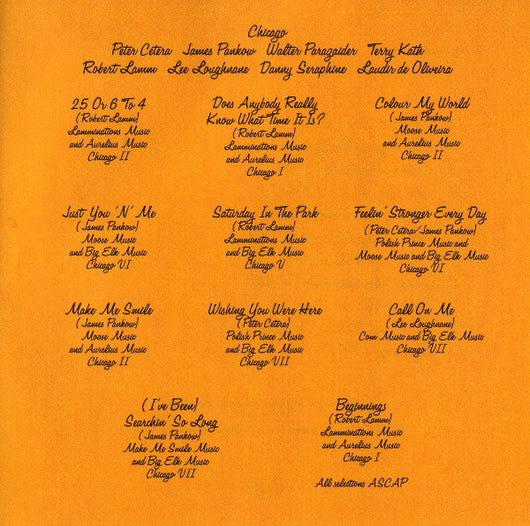 Chicago
Peter Cetera James Pankow Walter Parazaider Terry Kath
Robert Lamm Lee Loughnane Danny Seraphine Laudir de Oliveira
25 Or 6 To 4
(Robert Lamm)
Lamminations Music
and Aurelius Music
Chicago II
Does Anybody Really
Know What Time It Is?
(Robert Lamm)
Lamminations Music
and Aurelius Music
Chicago I
Colour My World
(James Pankow)
Moose Music
and Aurelius Music
Chicago II
Just You 'N' Me
(James Pankow)
Moose Music
and Big Elk Music
Chicago VI
Saturday In The Park
(Robert Lamm)
Lamminations Music
and Big Elk Music
Chicago V
Feelin' Stronger Every Day
(Peter Cetera/James Pankow)
Polish Prince Music and
Moose Music and Big Elk Music
Chicago VI
Make Me Smile
(James Pankow)
Moose Music
and Aurelius Music
Chicago II
Wishing You Were Here
(Peter Cetera)
Polish Prince Music
and Big Elk Music
Chicago VII
Call On Me
(Lee Loughnane)
Com Music and Big Elk Music
Chicago VII
(I've Been)
Searchin' So Long
(James Pankow)
Make Me Smile Music
and Big Elk Music
Chicago VII
Beginnings
(Robert Lamm)
Lamminations Music
and Aurelius Music
Chicago I
All selections ASCAP